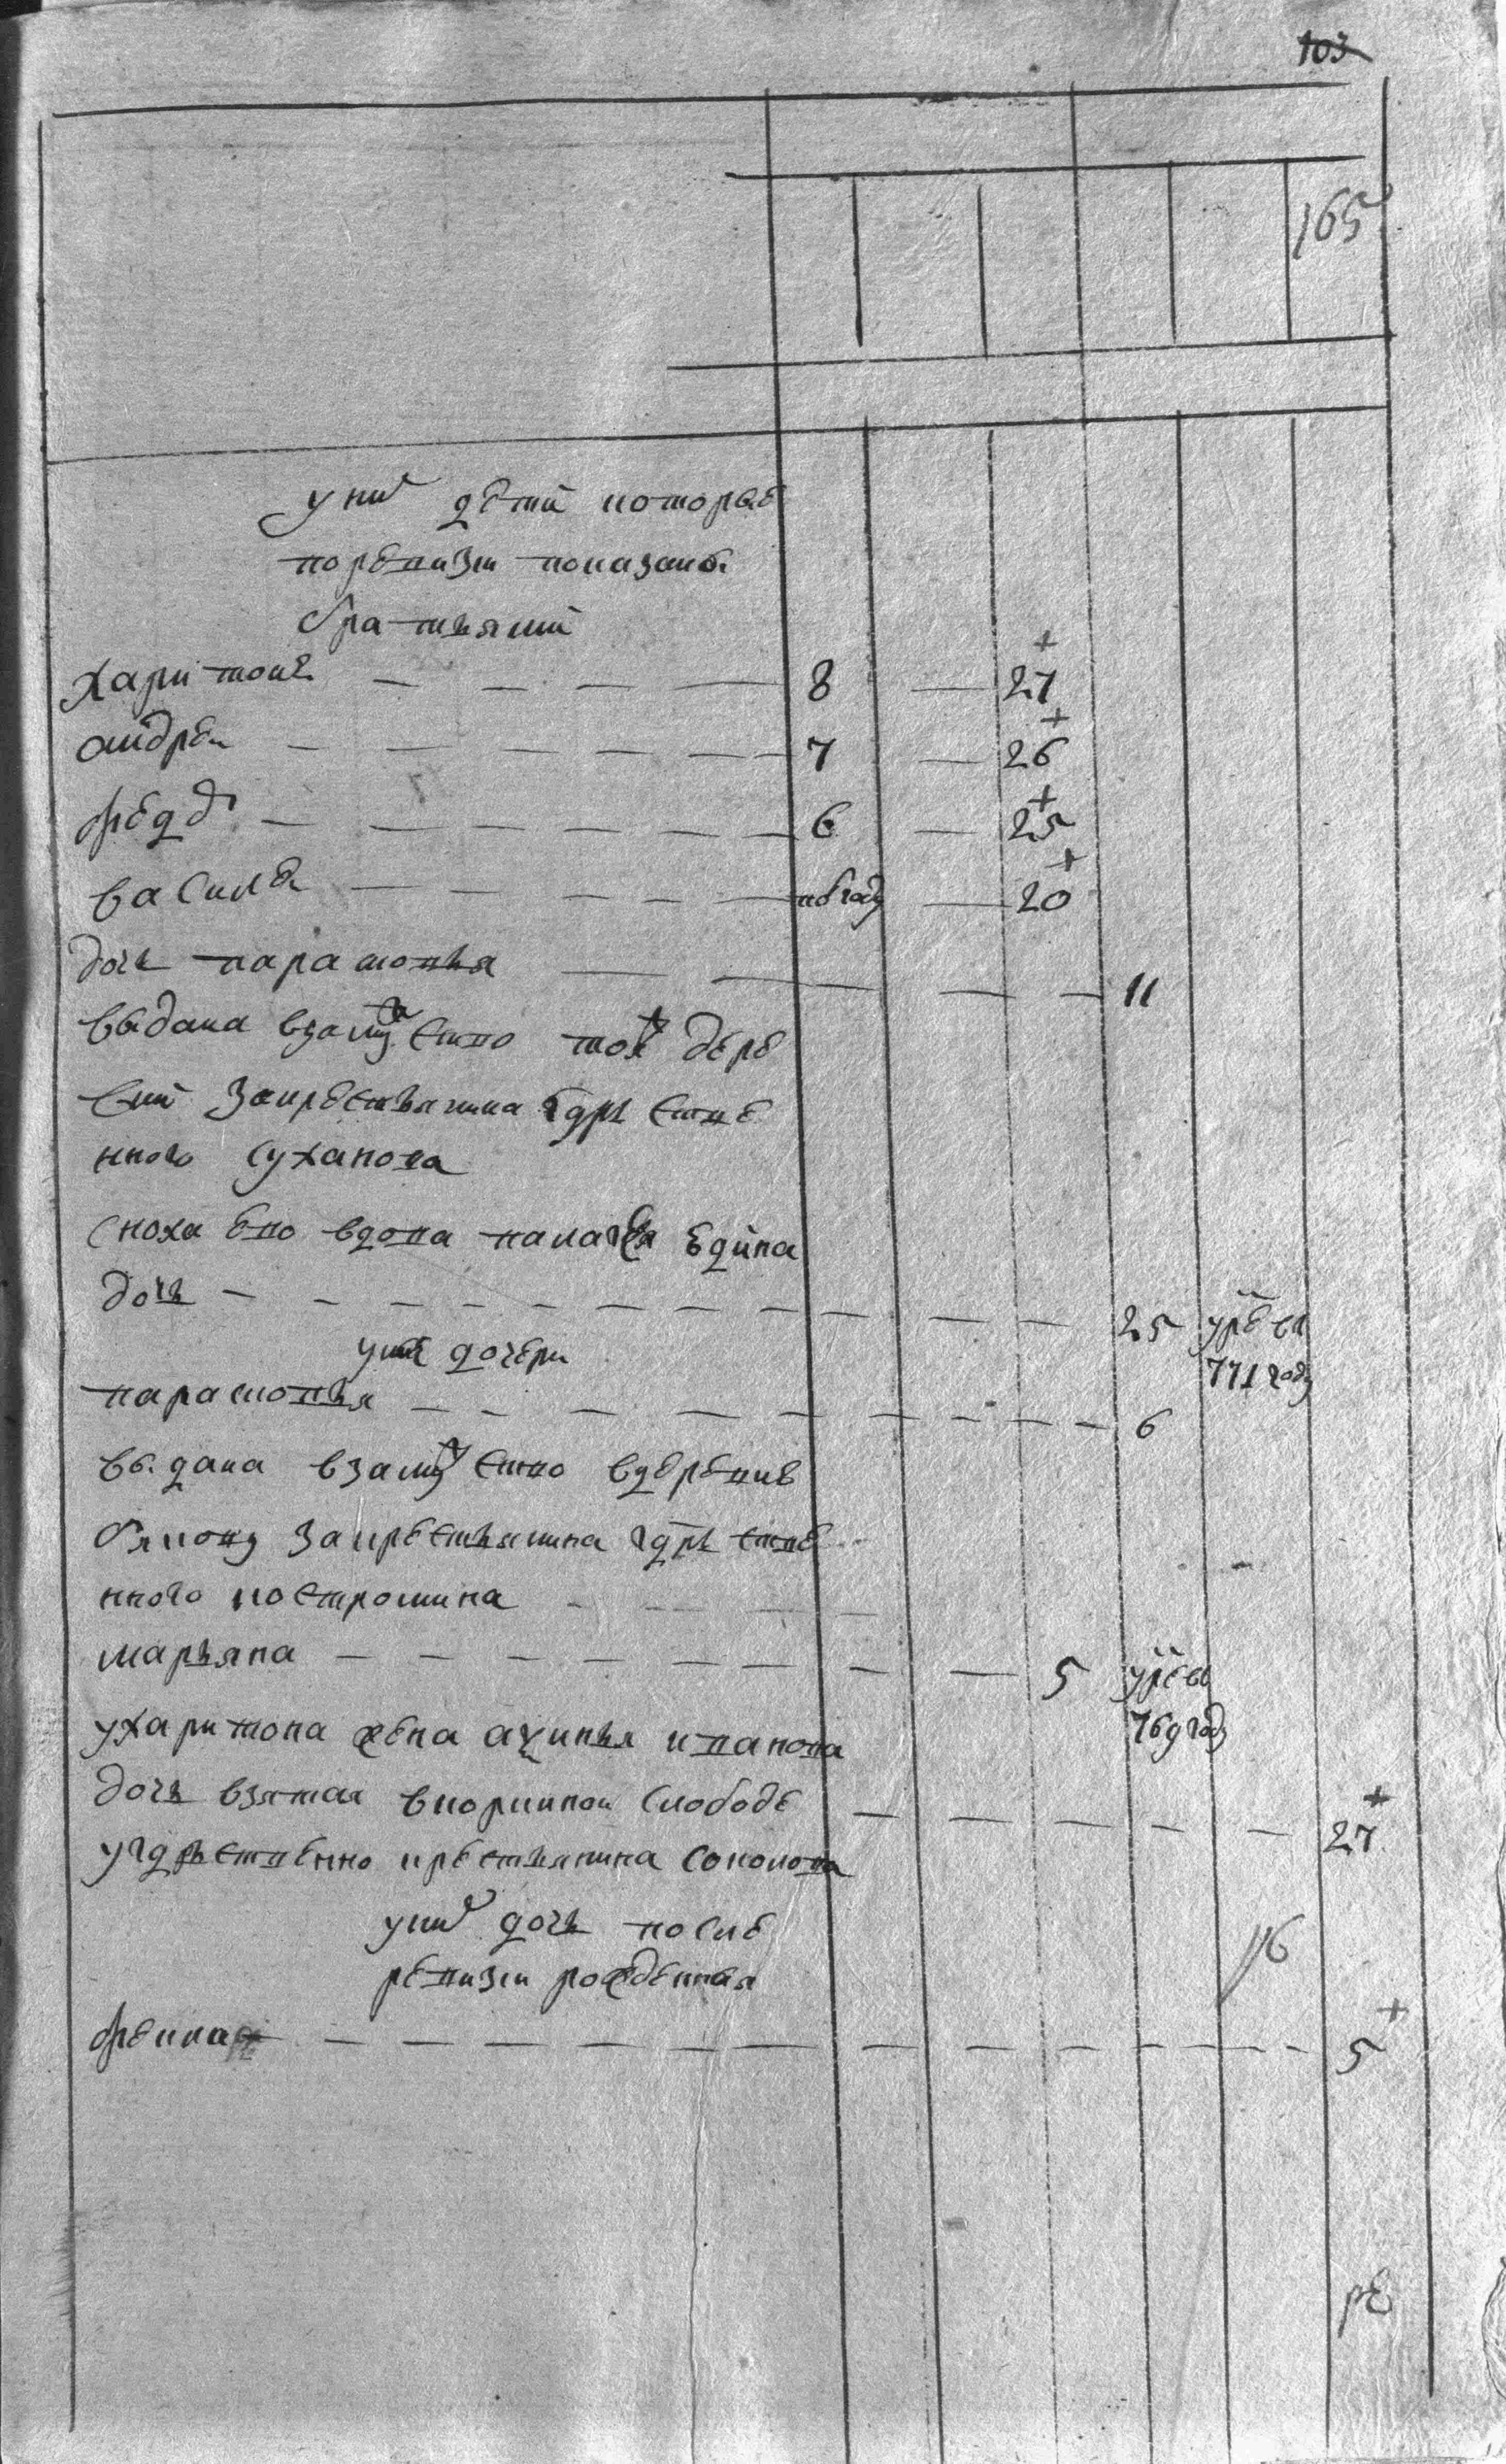 103
165
у них дети которые
по ревизи показаны
братьями
харитонъ — — — — 8 — 27 +
андреи — — — — — 7 — 26 +
федоръ — — — — — 6 — 25 +
василеи — — — — — полгоду — 20 +
дочь парамонья — — — — — 11
выдана взамужество тоя ж дере
вни за крестьянина гдрьстве
нного суханова
сноха ево вдова палагея
дочь — — — — — — — — — — 25 умре въ
771 году
у неи дочери
парамонья — — — — — — — — — 6
выдана взамужество в деревне
быкову за крестьянина гдрьстве
нного костромина — — — —
марьяна — — — — — — — 5 умре въ
769 году
у харитона жена аксинья иванова
дочь взятая в коркинои слободе — — — — — 27 +
у гдрьственно крестьянина соколова
у них дочь после
ревизи рожденная
фекла — — — — — — — — — — — — 5 +
рε